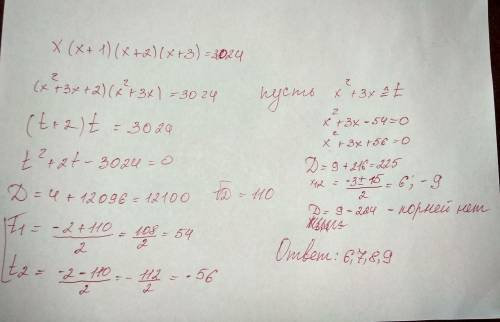 x(x+1)(x+2)(x+3)=3024
(x²+3x+2)(x²+3x)=3024
(t+2)t=3024
t²+2t-3024=0
D=4+12096=12100 √D=110
t1=(-2+110)/2=108/2=54
t2=(-2-110)/2=-112/2=-56
пусть x²+3x=t
x²+3x-54=0
x²+3x+56=0
D=9+216=225
x1,2=(-3±15)/2=6; -9
D=9-224 - корней нет
Ответ: 6,7,8,9